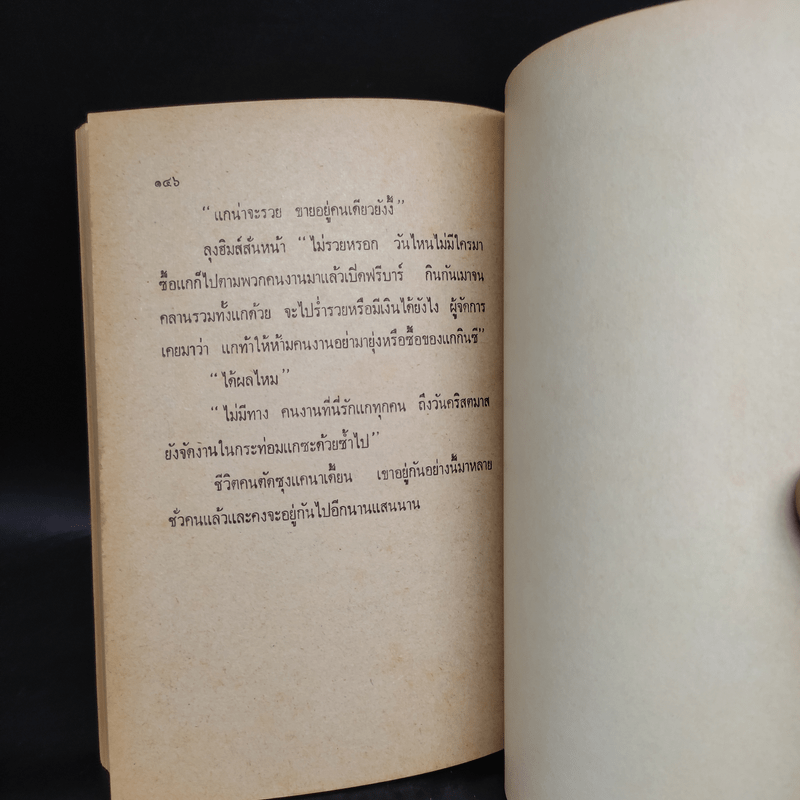 ๑๔๖
“ แกน่าจะรวย ขายอยู่คนเดียวยังงี้ ”
ลุงฮิมส์สั่นหน้า “ ไม่รวยหรอก วันไหนไม่มีใครมา
ซื้อแกก็ไปตามพวกคนงานมาแล้วเปิดฟรีบาร์ กินกันเมาจน
คลานรวมทั้งแกด้วย จะไปร่ำรวยหรือมีเงินได้ยังไง ผู้จัดการ
เคยมาว่า แกท้าให้ห้ามคนงานอย่ามายุ่งหรือซื้อของแกกินซี ”
“ ได้ผลไหม ”
“ ไม่มีทาง คนงานที่นี่รักแกทุกคน ถึงวันคริสตมาส
ยังจัดงานในกระท่อมแกซะด้วยซ้ำไป ”
ชีวิตคนตัดซุงแคนาเดี้ยน เขาอยู่กันอย่างนี้มาหลาย
ชั่วคนแล้วและคงจะอยู่กันไปอีกนานแสนนาน